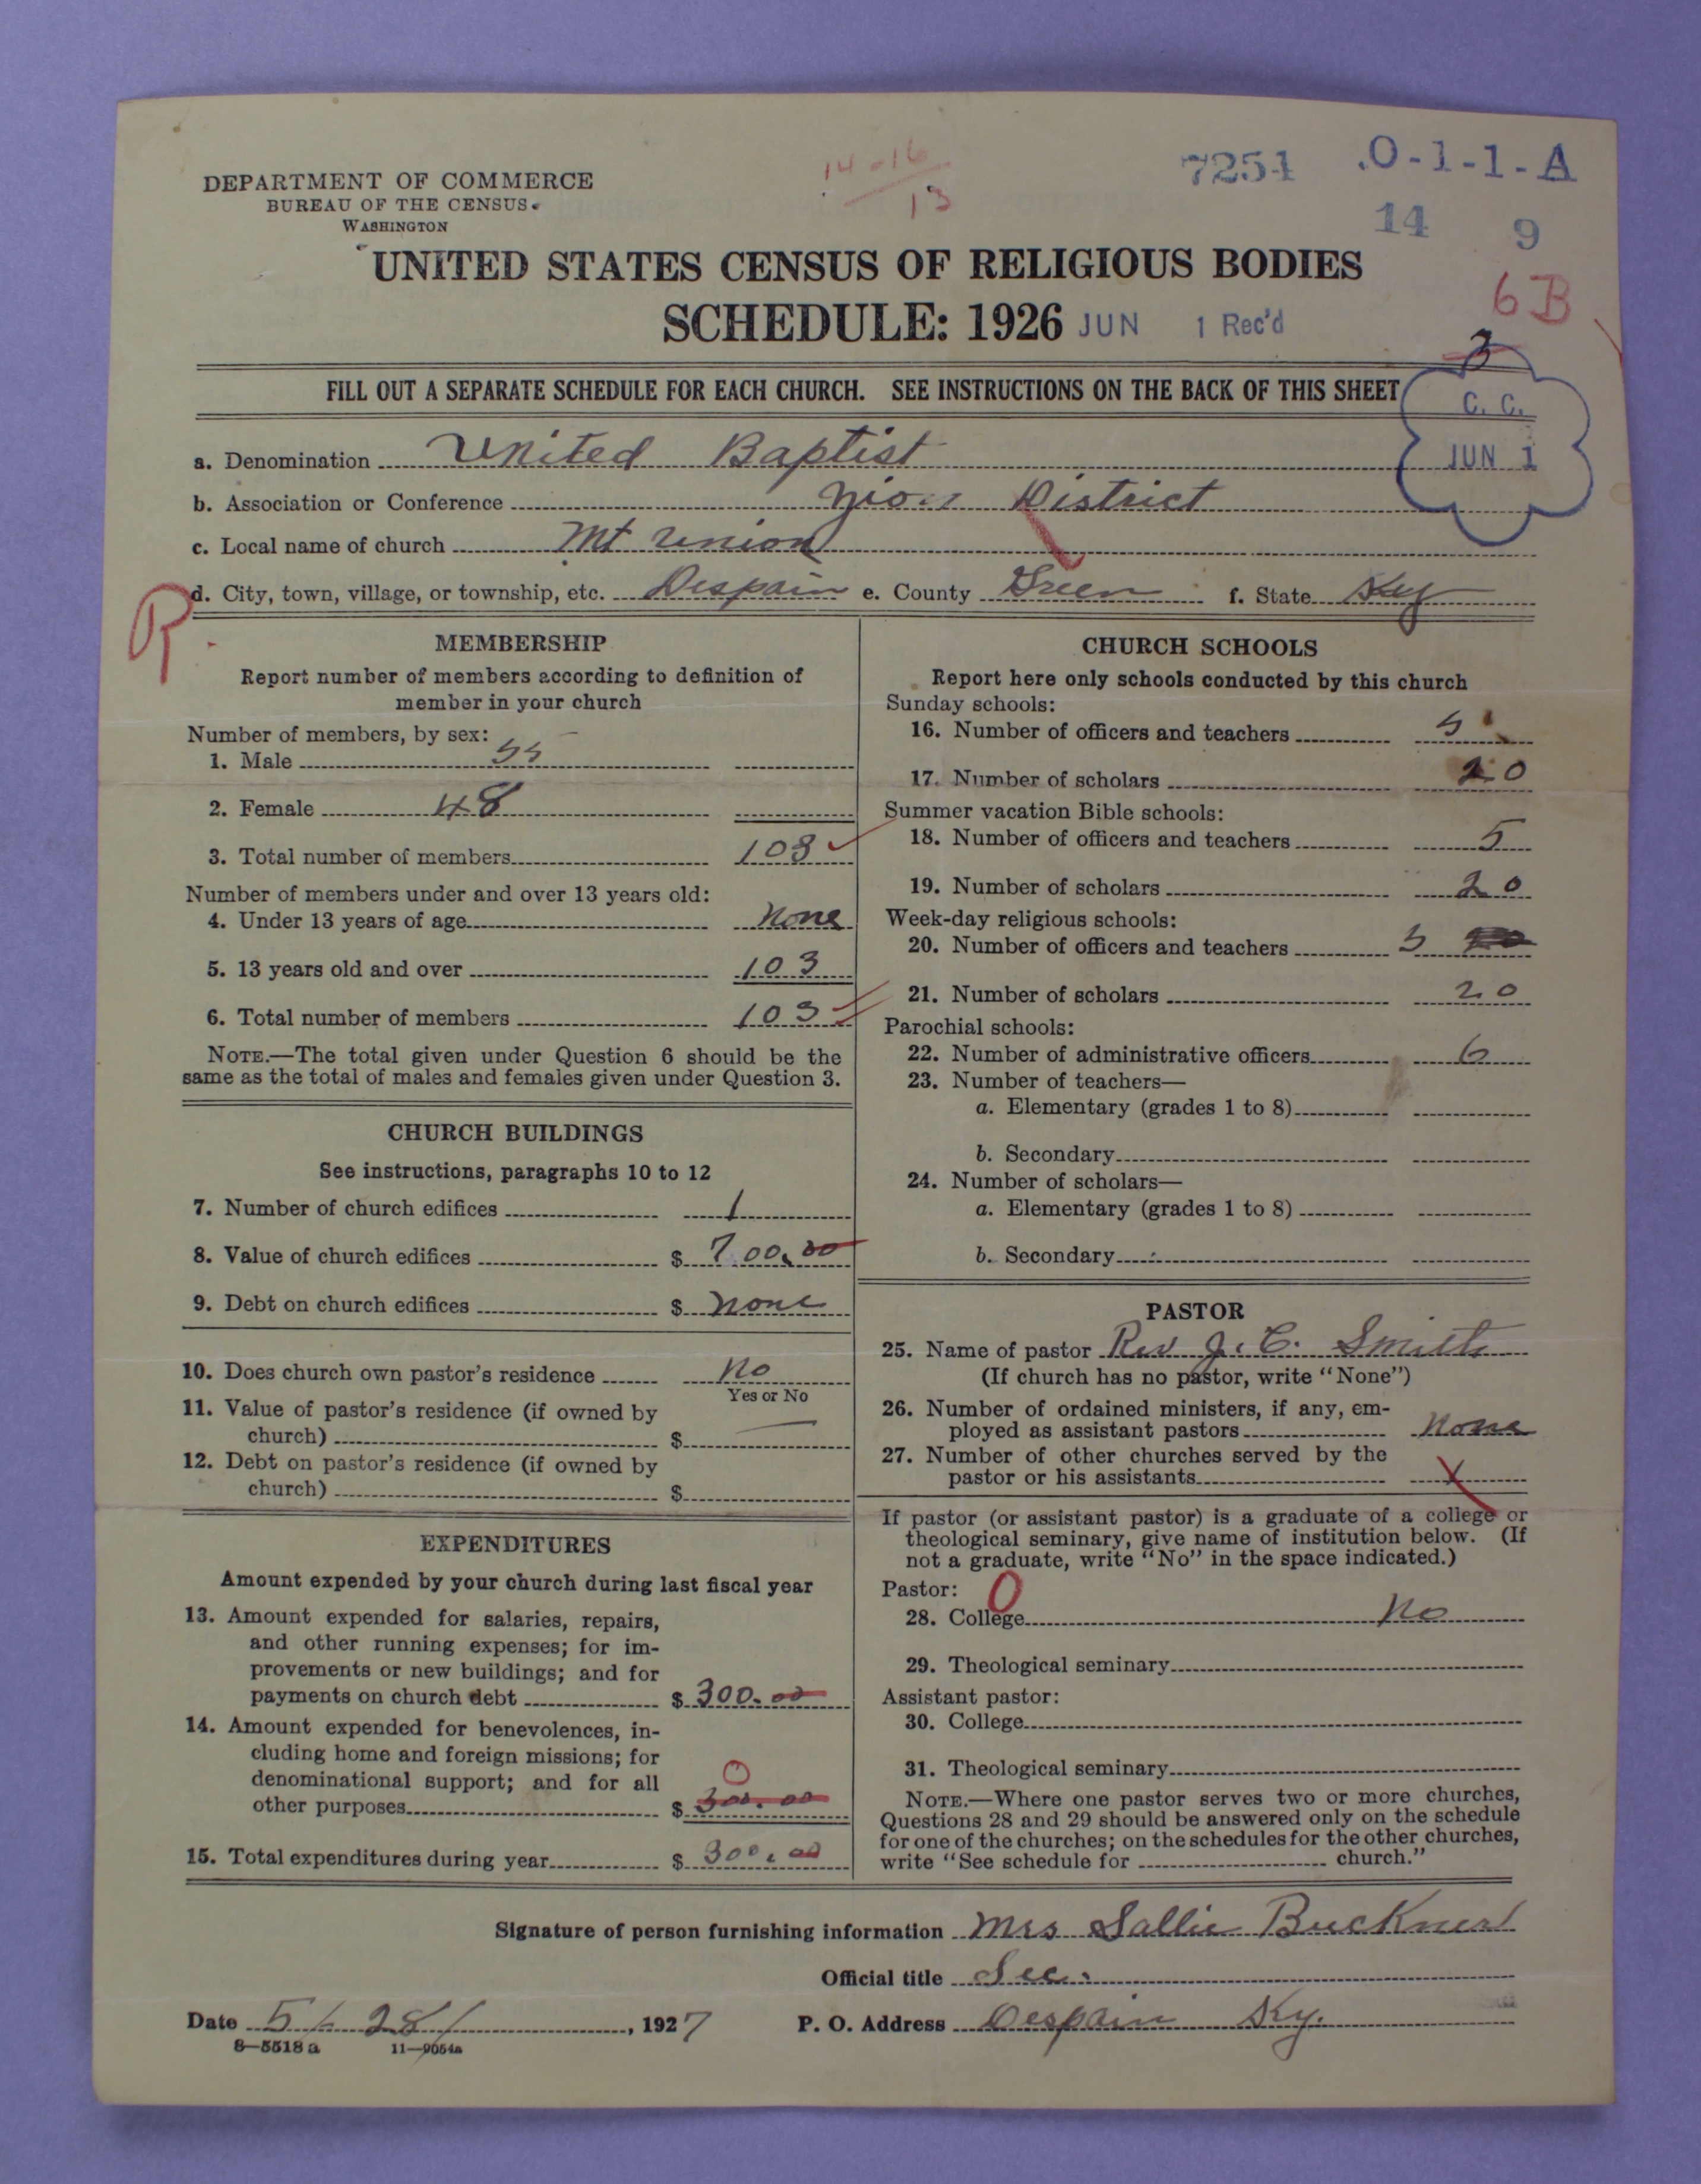 14-16
13
7254
.O-1-1-A
14 9
6B
DEPARTMENT OF COMMERCE
BUREAU OF THE CENSUS
WASHINGTON
UNITED STATES CENSUS OF RELIGIOUS BODIES
SCHEDULE: 1926 JUN 1 Rec'd
3
FILL OUT A SEPARATE SCHEDULE FOR EACH CHURCH. SEE INSTRUCTIONS ON THE BACK OF THIS SHEET
C. C.
JUN 1
a. Denomination United Baptist
b. Association or Conference Zion District
c. Local name of church Mt Union
d. City, town, village, or township, etc. Despain e. County Green f. State Ky
R
MEMBERSHIP
Report number of members according to definition of
member in your church
Number of members, by sex:
1. Male 55
2. Female 48
3. Total number of members 103
Number of members under and over 13 years old:
4. Under 13 years of age None
5. 13 years old and over 103
6. Total number of members 103
NOTE.—The total given under Question 6 should be the
same as the total of males and females given under Question 3.
CHURCH BUILDINGS
See instructions, paragraphs 10 to 12
7. Number of church edifices 1
8. Value of church edifices $ 700.00
9. Debt on church edifices $ none
10. Does church own pastor's residence No
Yes or No
11. Value of pastor's residence (if owned by
church) $ —
12. Debt on pastor's residence (if owned by
church) $
EXPENDITURES
Amount expended by your church during last fiscal year
13. Amount expended for salaries, repairs,
and other running expenses; for im-
provements or new buildings; and for
payments on church debt $ 300.00
14. Amount expended for benevolences, in-
cluding home and foreign missions; for
denominational support; and for all
0
other purposes $ 300.00
15. Total expenditures during year $ 300.00
CHURCH SCHOOLS
Report here only schools conducted by this church
Sunday schools:
16. Number of officers and teachers 5
17. Number of scholars 20
Summer vacation Bible schools:
18. Number of officers and teachers 5
19. Number of scholars 20
Week-day religious schools:
20. Number of officers and teachers 5
21. Number of scholars 20
Parochial schools:
22. Number of administrative officers 6
23. Number of teachers—
a. Elementary (grades 1 to 8)
b. Secondary
24. Number of scholars—
a. Elementary (grades 1 to 8)
b. Secondary
PASTOR
25. Name of pastor Rev J. C. Smith
(If church has no pastor, write "None")
26. Number of ordained ministers, if any, em-
ployed as assistant pastors None
27. Number of other churches served by the
pastor or his assistants X
If pastor (or assistant pastor) is a graduate of a college or
theological seminary, give name of institution below. (If
not a graduate, write "No" in the space indicated.)
Pastor: 0
28. College No
29. Theological seminary
Assistant pastor:
30. College
31. Theological seminary
NOTE.—Where one pastor serves two or more churches,
Questions 28 and 29 should be answered only on the schedule
for one of the churches; on the schedules for the other churches,
write "See schedule for church."
Signature of person furnishing information Mrs Sallie Buckner
Official title Sec.
Date 5/28/, 1927 P. O. Address Despain Ky.
8—5518a 11—9054a